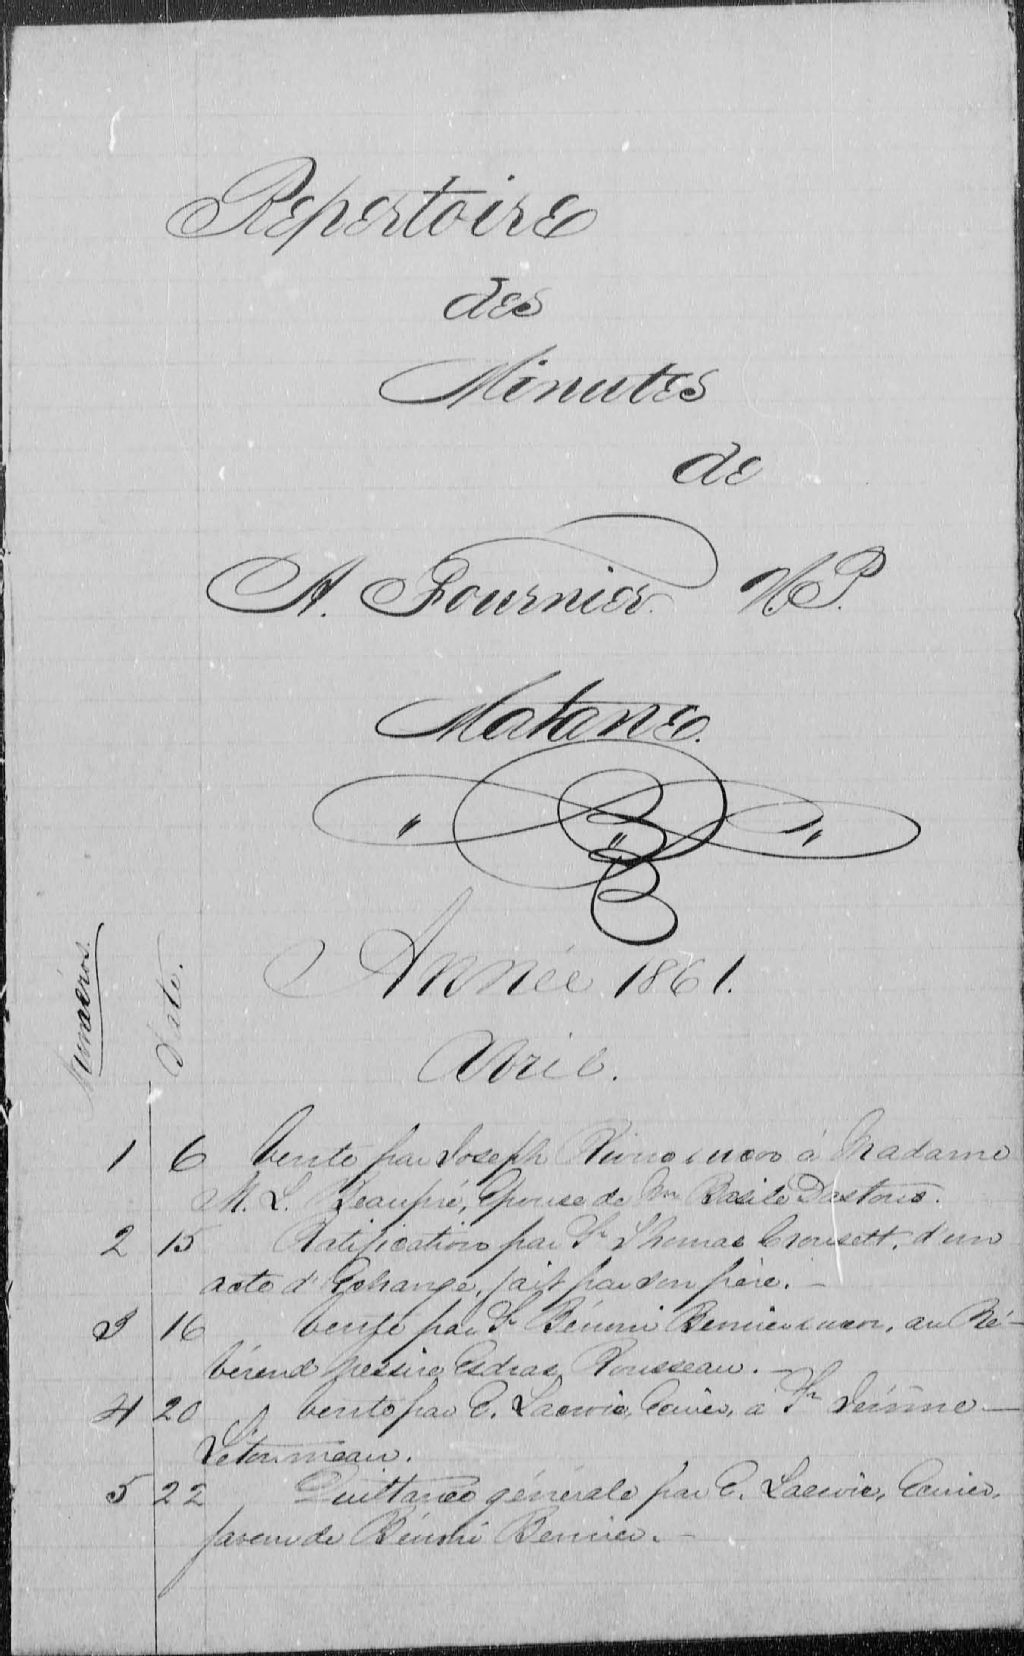 Repertoire
des
Minutes
de
A. Fournier N.P.
Matane.
Année 1861.
Avril.
Numéros. Date.
1 6 Vente par Joseph & uxor à Madame
M. L. Beaupré, Epouse de Mr Basile Dastous.
2 15 Ratification par Sr Thomas Crousett, d'un
acte d'Echange, fait par son frère. —
3 16 Vente par Sr Bénoni Bernier & uxor, au Ré-
vérend Messire Esdras Rousseau. —
4 20 Vente par E. Lacroix, Ecuier, a Sr —
Létourneau.
5 22 Quittance générale par E. Lacroix, Ecuier,
faveur de Bénoni Bernier. —